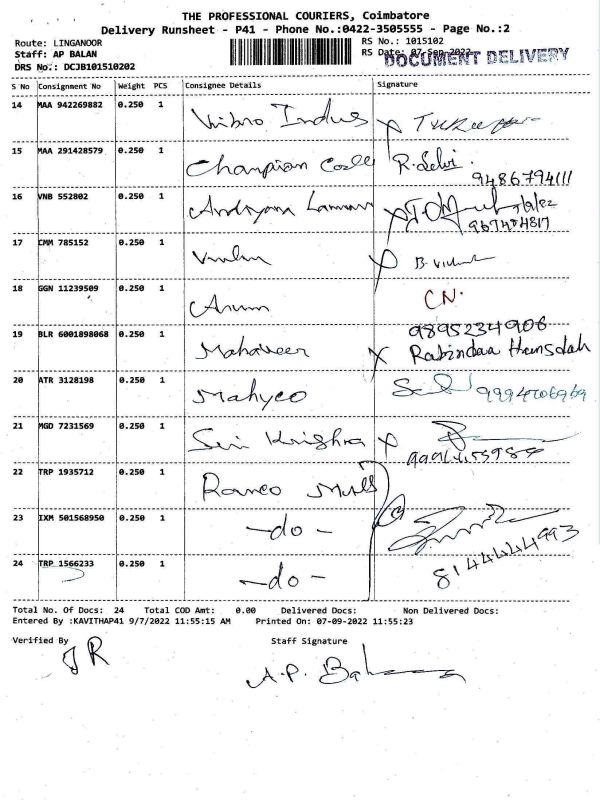 THE PROFESSIONAL COURIERS, Coimbatore
Delivery Runsheet - P41 - Phone No.:0422-3505555 - Page No.:2
Route: LINGANOOR
Staff: AP BALAN
DRS No.: DCJB101510202
RS No.: 1015102
RS Date: 07-Sep-2022
DOCUMENT DELIVERY
S No Consignment No Weight PCS Consignee Details Signature
14 MAA 942269882 0.250 1 Vibro Indus
15 MAA 291428579 0.250 1 Champion R. Selvi
9486794111
16 VNB 552802 0.250 1
9674(4817
17 CMM 785152 0.250 1
18 GGN 11239509 0.250 1 Arum CN.
19 BLR 6001898068 0.250 1 Mahaveer 9895234906
Rabindaa Hansdah
20 ATR 3128198 0.250 1 Mahyco
21 MGD 7231569 0.250 1 Sri Krishna
22 TRP 1935712 0.250 1 Ranco Mills
23 IXM 501568950 0.250 1 -do-
24 TRP 1566233 0.250 1 -do- 8144444993
Total No. Of Docs: 24 Total COD Amt: 0.00 Delivered Docs: Non Delivered Docs:
Entered By :KAVITHAP41 9/7/2022 11:55:15 AM Printed On: 07-09-2022 11:55:23
Verified By Staff Signature
JR A.P.